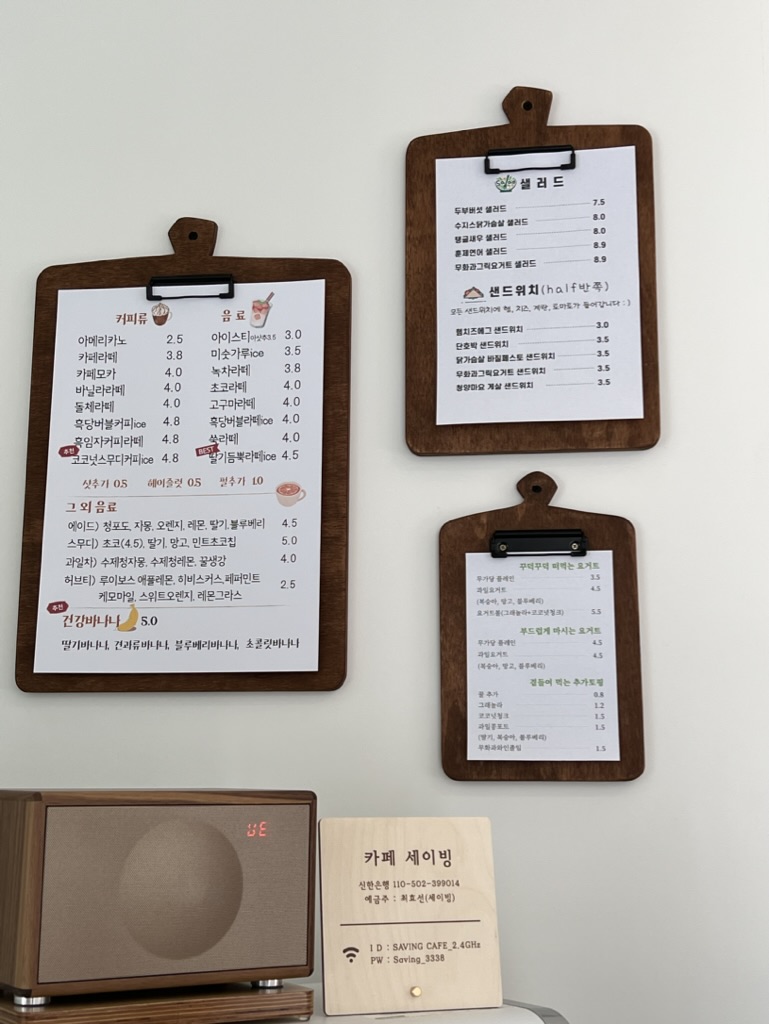 커피류
아메리카노 2.5
카페라떼 3.8
카페모카 4.0
바닐라라떼 4.0
돌체라떼 4.0
흑당버블커피ice 4.8
흑임자커피라떼 4.8
추천
코코넛스무디커피ice 4.8
음료
아이스티아샷추3.5 3.0
미숫가루ice 3.5
녹차라떼 3.8
초코라떼 4.0
고구마라떼 4.0
흑당버블라떼ice 4.0
쑥라떼 4.0
BEST
딸기듬뿍라떼ice 4.5
샷추가 0.5 헤이즐럿 0.5 펄추가 1.0
그 외 음료
에이드) 청포도, 자몽, 오렌지, 레몬, 딸기, 블루베리 4.5
스무디) 초코(4.5), 딸기, 망고, 민트초코칩 5.0
과일차) 수제청자몽, 수제청레몬, 꿀생강 4.0
허브티) 루이보스 애플레몬, 히비스커스, 페퍼민트 2.5
케모마일, 스위트오렌지, 레몬그라스
추천
건강바나나 5.0
딸기바나나, 견과류바나나, 블루베리바나나, 초콜릿바나나
샐러드
두부버섯 샐러드 7.5
수지스닭가슴살 샐러드 8.0
탱글새우 샐러드 8.0
훈제연어 샐러드 8.9
무화과그릭요거트 샐러드 8.9
샌드위치(half반쪽)
모든 샌드위치에 햄, 치즈, 계란, 토마토가 들어갑니다 : )
햄치즈에그 샌드위치 3.0
단호박 샌드위치 3.5
닭가슴살 바질페스토 샌드위치 3.5
무화과그릭요거트 샌드위치 3.5
청양마요 게살 샌드위치 3.5
꾸덕꾸덕 떠먹는 요거트
무가당 플레인 3.5
과일요거트 4.5
(복숭아, 망고, 블루베리)
요거트볼(그래놀라+코코넛청크) 5.5
부드럽게 마시는 요거트
무가당 플레인 4.5
과일요거트 4.5
(복숭아, 망고, 블루베리)
곁들여 먹는 추가토핑
꿀 추가 0.8
그래놀라 1.2
코코넛청크 1.5
과일콩포트 1.5
(딸기, 복숭아, 블루베리)
무화과와인졸임 1.5
UE
카페 세이빙
신한은행 110-502-399014
예금주 : 최효선(세이빙)
ID : SAVING CAFE_2.4GHz
PW : Saving_3338